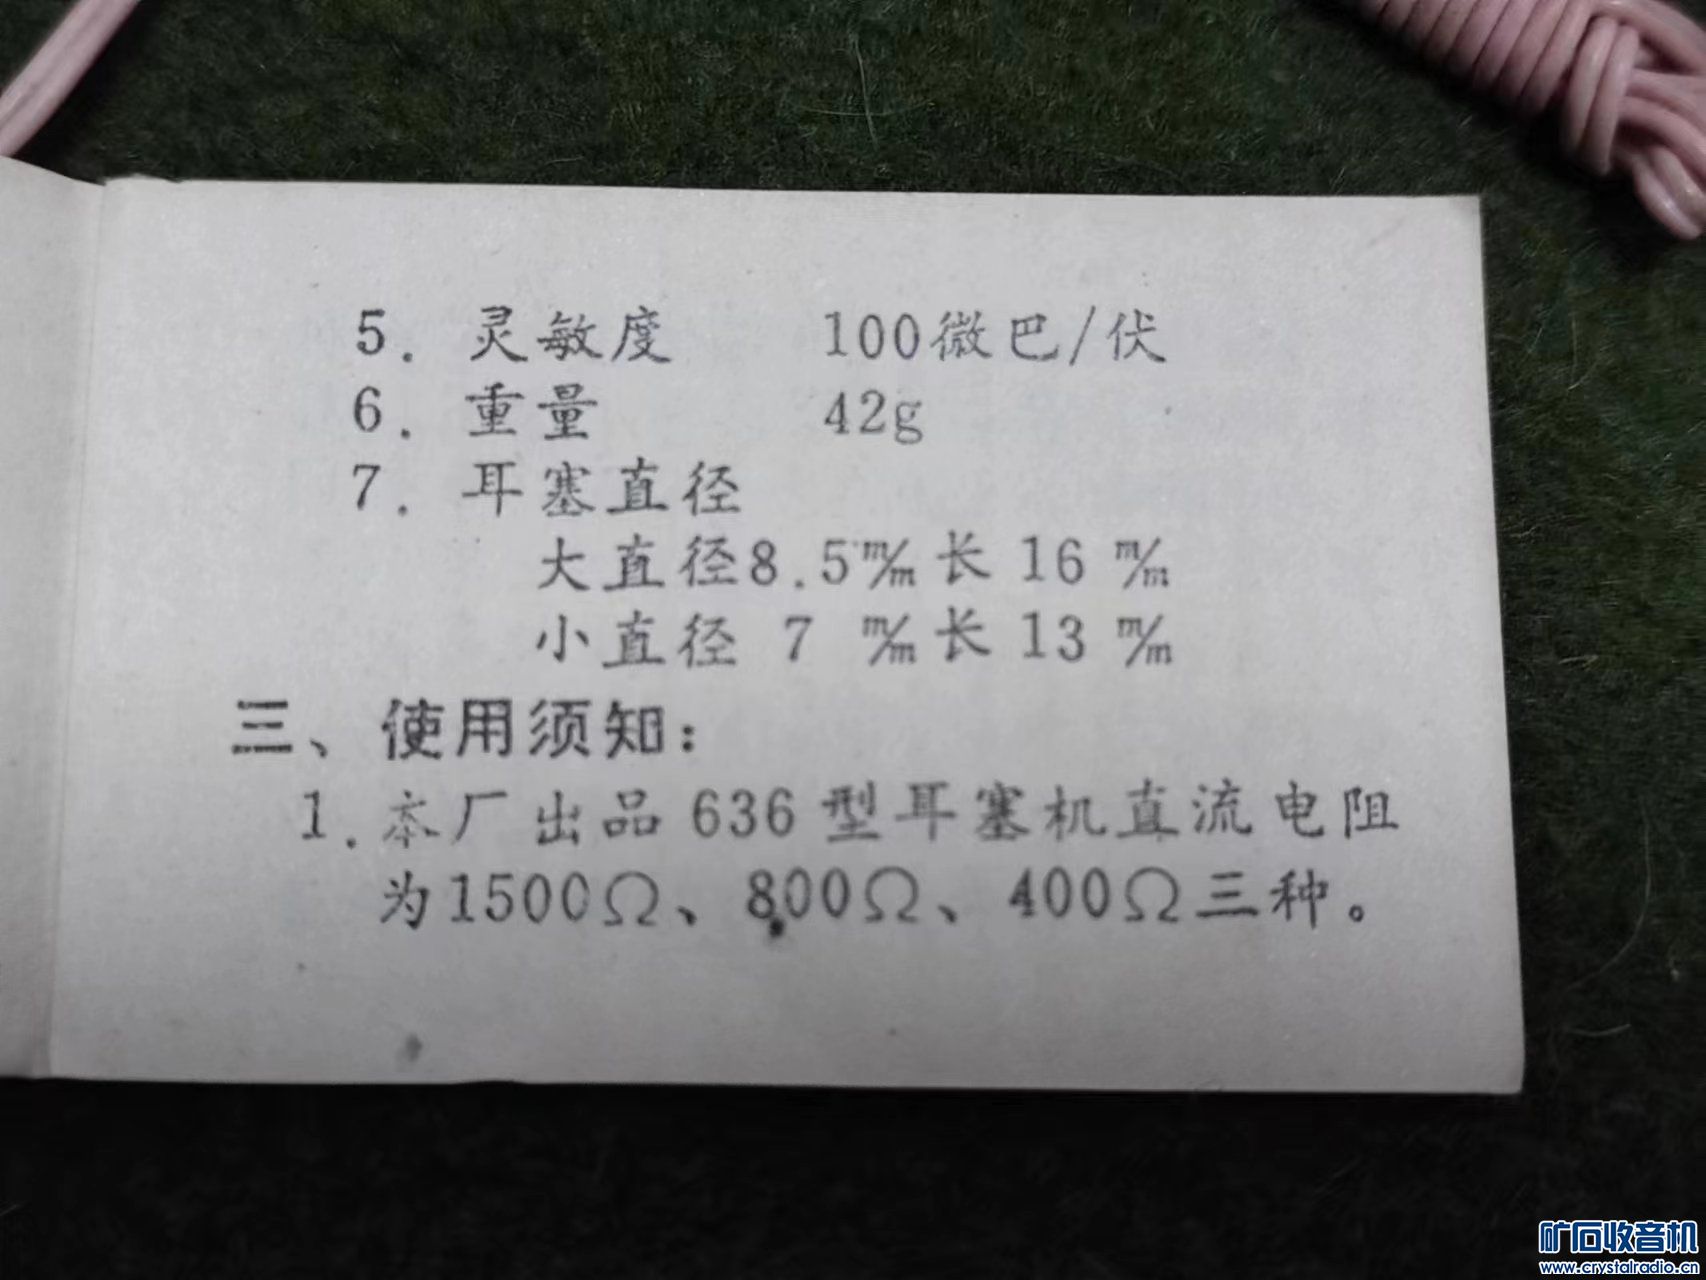 5. 灵敏度 100微巴/伏
6. 重量 42g
7. 耳塞直径
大直径8.5m/m长 16 m/m
小直径 7 m/m长 13 m/m
三、使用须知：
1. 本厂出品 636 型耳塞机直流电阻
为1500Ω、800Ω、400Ω三种。
矿石收音机
www.crystalradio.cn